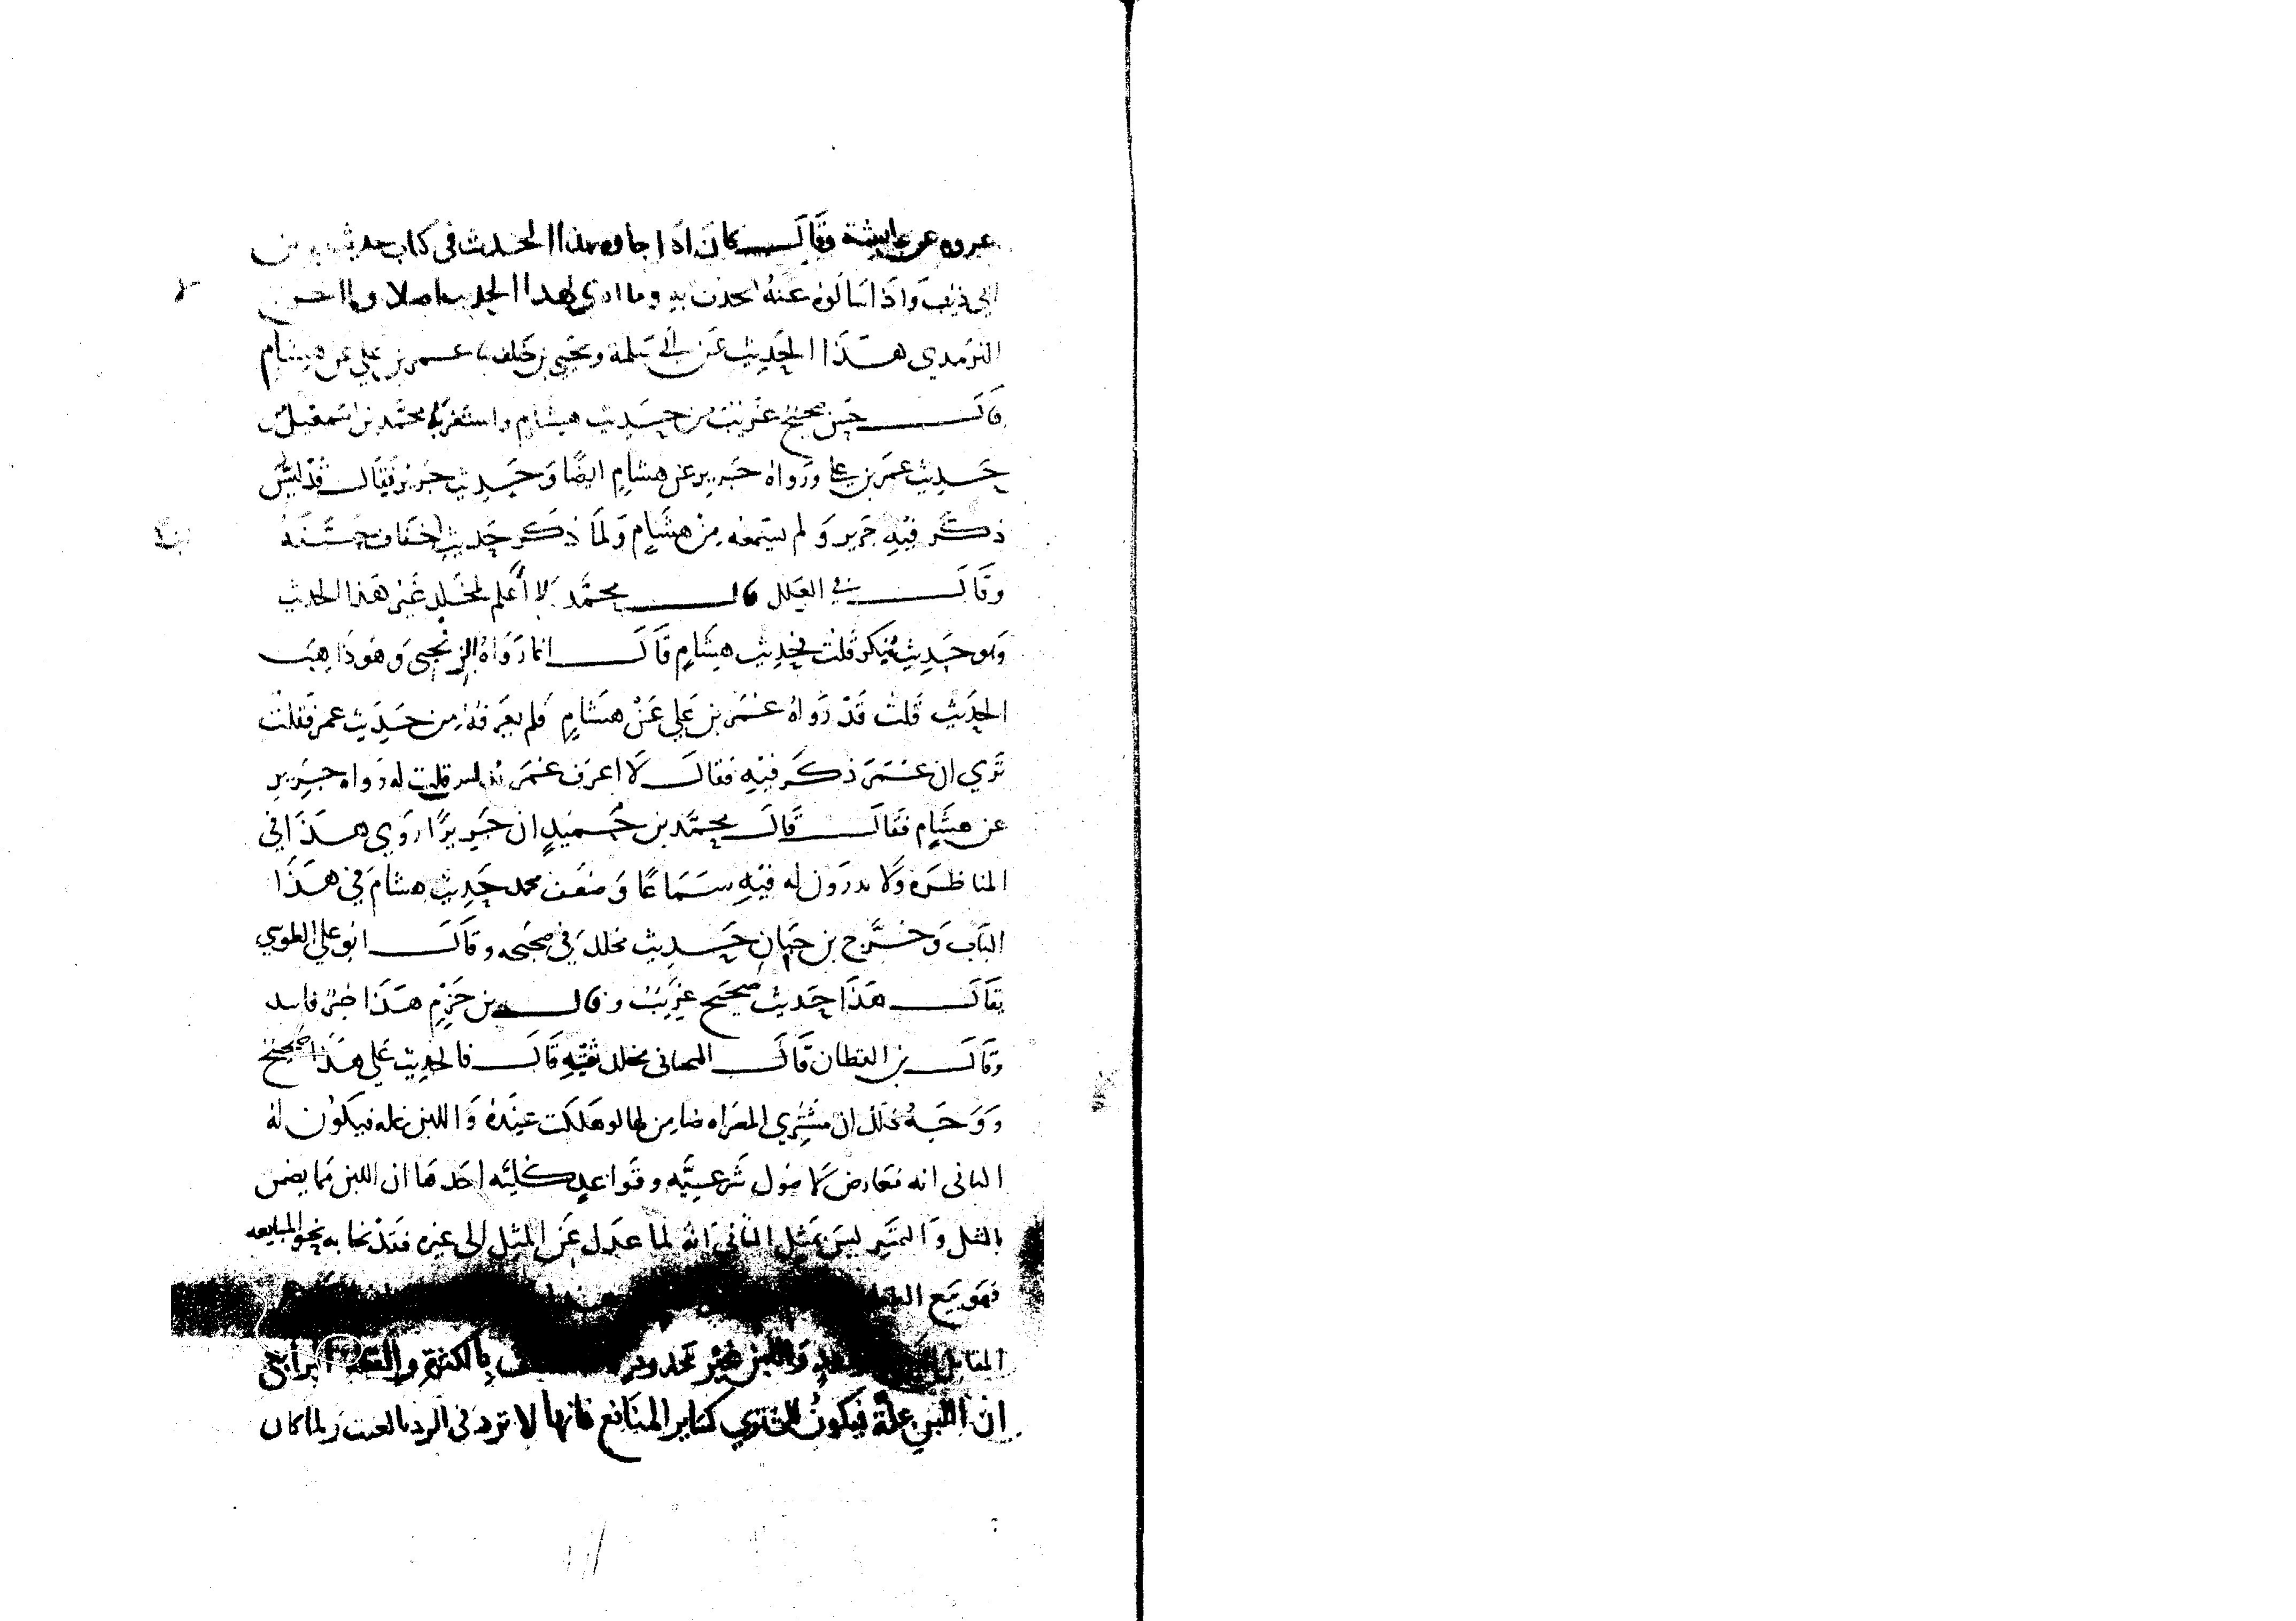 عروه عن عايشة وقال كان اذا جاوه بهذا الحديث في كتاب حديث
ابي ذيب واذا سالوه عنه لم يحدث به وما ادري لهذا الحديث اصلا ولا
الترمذي هذا الحديث عن ابي سلمة ويحيى بن خلف عمر بن علي عن هشام
قال حسن صحيح غريب من حديث هشام واستغربه محمد بن اسمعيل من
حديث عمر بن علي ورواه جرير عن هشام ايضا وحديث جرير فيقال تدليس
ذكر فيه جرير ولم يسمعه من هشام ولما ذكر حديث خفاف حسنه
وقال في العلل قال محمد لا أعلم لمخلد غير هذا الحديث
وهو حديث منكر قلت فحديث هشام قال انما رواه الزنجي وهو ذاهب
الحديث قلت قد رواه عمر بن علي عن هشام فلم يعرفه من حديث عمر فقلت
تري ان عمر ذكر فيه فقال لا اعرف عمر تدليس قلت له رواه جرير
عن هشام فقال قال محمد بن حميد ان جريرا روي هذا في
المناظره ولا يدرون له فيه سماعا وضعف محمد حديث هشام في هذا
الباب وخرج بن حبان حديث مخلد في صحيحه وقال ابو علي الطوسي
يقال هذا حديث صحيح غريب وقال بن حزم هذا خبر فاسد
وقال بن القطان قال مخلد ثقيه قال فالحديث علي هذا صحيح
ووجه ذلك ان مشتري المصراه ضامن لها لو هلكت عنده واللبن غله فيكون له
الثاني انه معارض لاصول شرعيه وقواعد كليه احدها ان اللبن مما يضمن
بالمثل والتمر ليس بمثل الثاني انه لما عدل عن المثل الى غيره فقد نحا به نحو المبايعه
فهو بيع
المقابل واللبن غير محدود بالكثرة والقله الرابع
ان اللبن غلة فيكون للمشتري كساير المنافع فانها لا ترد في الرد بالعيب ولما كان